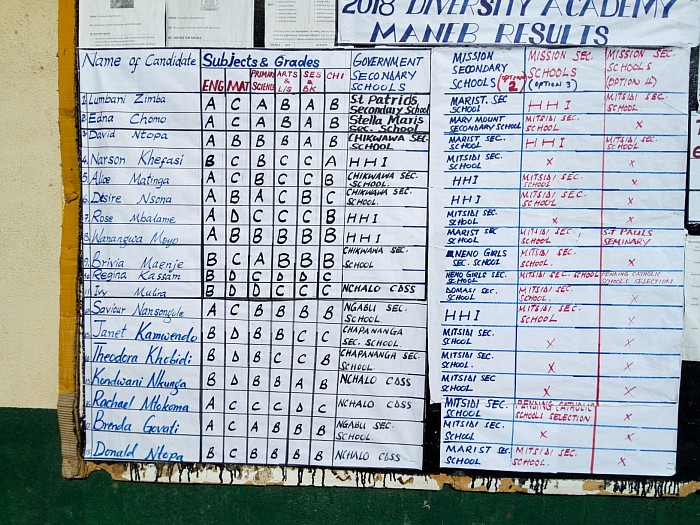 2018 DIVERSITY ACADEMY
MANEB RESULTS
Name of Candidate Subjects & Grades GOVERNMENT SECONDARY SCHOOLS MISSION SECONDARY SCHOOLS (OPTION 2) MISSION SEC. SCHOOLS (OPTION 3) MISSION SEC. SCHOOLS (OPTION 4)
ENG MAT PRIMARY SCIENCE ARTS & L/S SES & BK CHI
1. Lumbani Zimba A C A B A B St Patrids Secondary School MARIST. SEC SCHOOL HHI MITSIDI SEC. SCHOOL
2. Edna Chomo A A A B A B Stella Maris Sec. School MARY MOUNT SECONDARY SCHOOL MITSIDI SEC. SCHOOL X
3. David Ntopa A B B B A B CHIKWAWA SEC. SCHOOL MARIST SEC. SCHOOL HHI MITSIDI SEC. SCHOOL
4. Narson Khefasi B C B C C A HHI MITSIDI SEC. SCHOOL X X
5. Alice Matinga A C B C C B CHIKWAWA SEC. SCHOOL. HHI MITSIDI SEC. SCHOOL X
6. Desire Nsona A B A C B C CHIKWAWA SEC. SCHOOL HHI MITSIDI SEC. SCHOOL X
7. Rose Mbalame A D C C C B HHI MITSIDI SEC. SCHOOL X X
8. Wanangwa Moyo A B B B B B HHI MARIST SEC SCHOOL MITSIDI SEC. SCHOOL ST PAULS SEMINARY
9. Brivia Maenje B C A B B B CHIKWAWA SEC. SCHOOL NENO GIRLS SEC. SCHOOL MITSIDI SEC. SCHOOL X
10. Regina Kassam B D C D D C HENO GIRLS SEC. SCHOOL MITSIDI SEC. SCHOOL PENDING CATHOLIC SCHOOLS SELECTION
11. Ivy Mulira B D D C C C NCHALO CDSS DOMASI SEC SCHOOL MITSIDI SEC. SCHOOL. X
Saviour Nansongole A C B B B B NGABU SEC. SCHOOL HHI MITSIDI SEC. SCHOOL X
Janet Kamwendo B D B B C C CHAPANANGA SEC. SCHOOL MITSIDI SEC. SCHOOL X X
Theodora Khobidi B D B C C B CHAPANANGA SEC. SCHOOL MITSIDI SEC. SCHOOL. X X
Kondwani Nkunga B D B B A B NCHALO CDSS MITSIDI SEC SCHOOL X X
Rachael Mtokoma A C C C D C NCHALO CDSS MITSIDI SEC. SCHOOL PENDING CATHOLIC SCHOOLS SELECTION X
Brenda Govati A C A B B B NGABU SEC. SCHOOL. MITSIDI SEC. SCHOOL X X
Donald Ntopa B C B B B B NCHALO CDSS MARIST SEC. SCHOOL MITSIDI SEC. SCHOOL. X